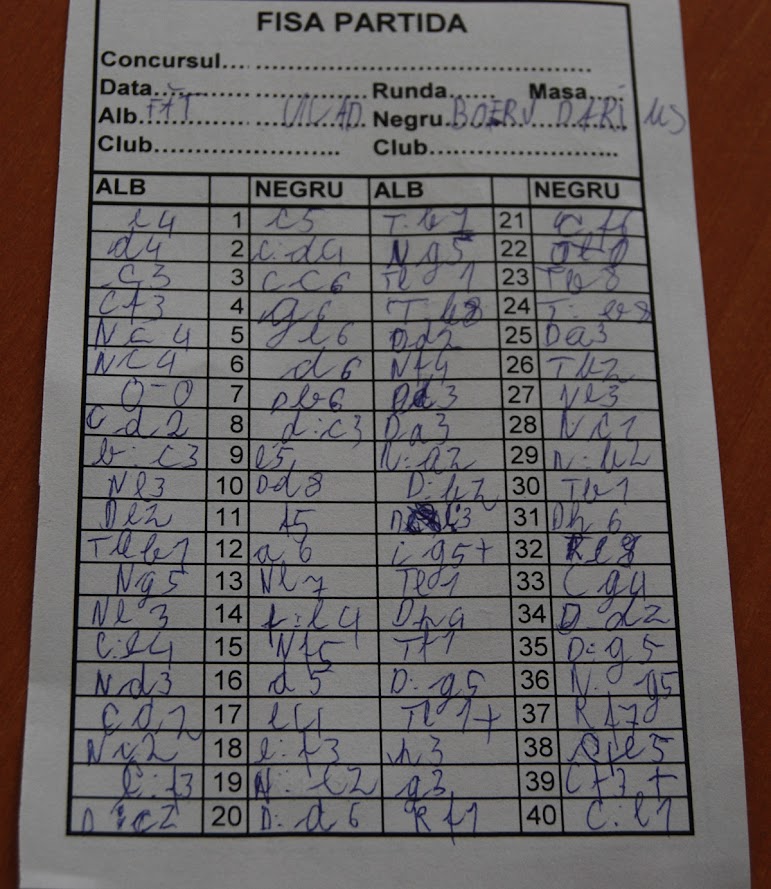 FISA PARTIDA
Concursul.... ................................................
Data.................................... Runda....... Masa....
Alb. FĂT VLAD Negru. BOERU DARIUS
Club......................... Club............................
ALB NEGRU ALB NEGRU
e4 1 c5 T:b7 21 Cf6
d4 2 c:d4 Ng5 22
c3 3 Cc6 Te1 23 Tb8
Cf3 4 g6 T:b8 24 T:b8
Nc4 5 ge6 Dd2 25 Da3
Nc4 6 d6 Nf4 26 Tb2
0-0 7 Db6 Dd3 27 Ne3
Cd2 8 d:c3 Da3 28 Nc1
b:c3 9 e5 N:a2 29 N:b2
Ne3 10 Dd8 D:b2 30 Tb1
De2 11 f5 31 Dh6
Teb1 12 a6 Cg5+ 32 Re8
Ng5 13 Ne7 Te1 33 Cg4
Ne3 14 f:e4 Df4 34 D:d2
C:e4 15 Nf5 Tf1 35 D:g5
Nd3 16 d5 D:g5 36 N:g5
Cd2 17 e4 Te1+ 37 Rf7
Nc2 18 e:f3 h3 38
C:f3 19 N:c2 g3 39 Cf3+
D:c2 20 D:d6 Rf1 40 C:e1